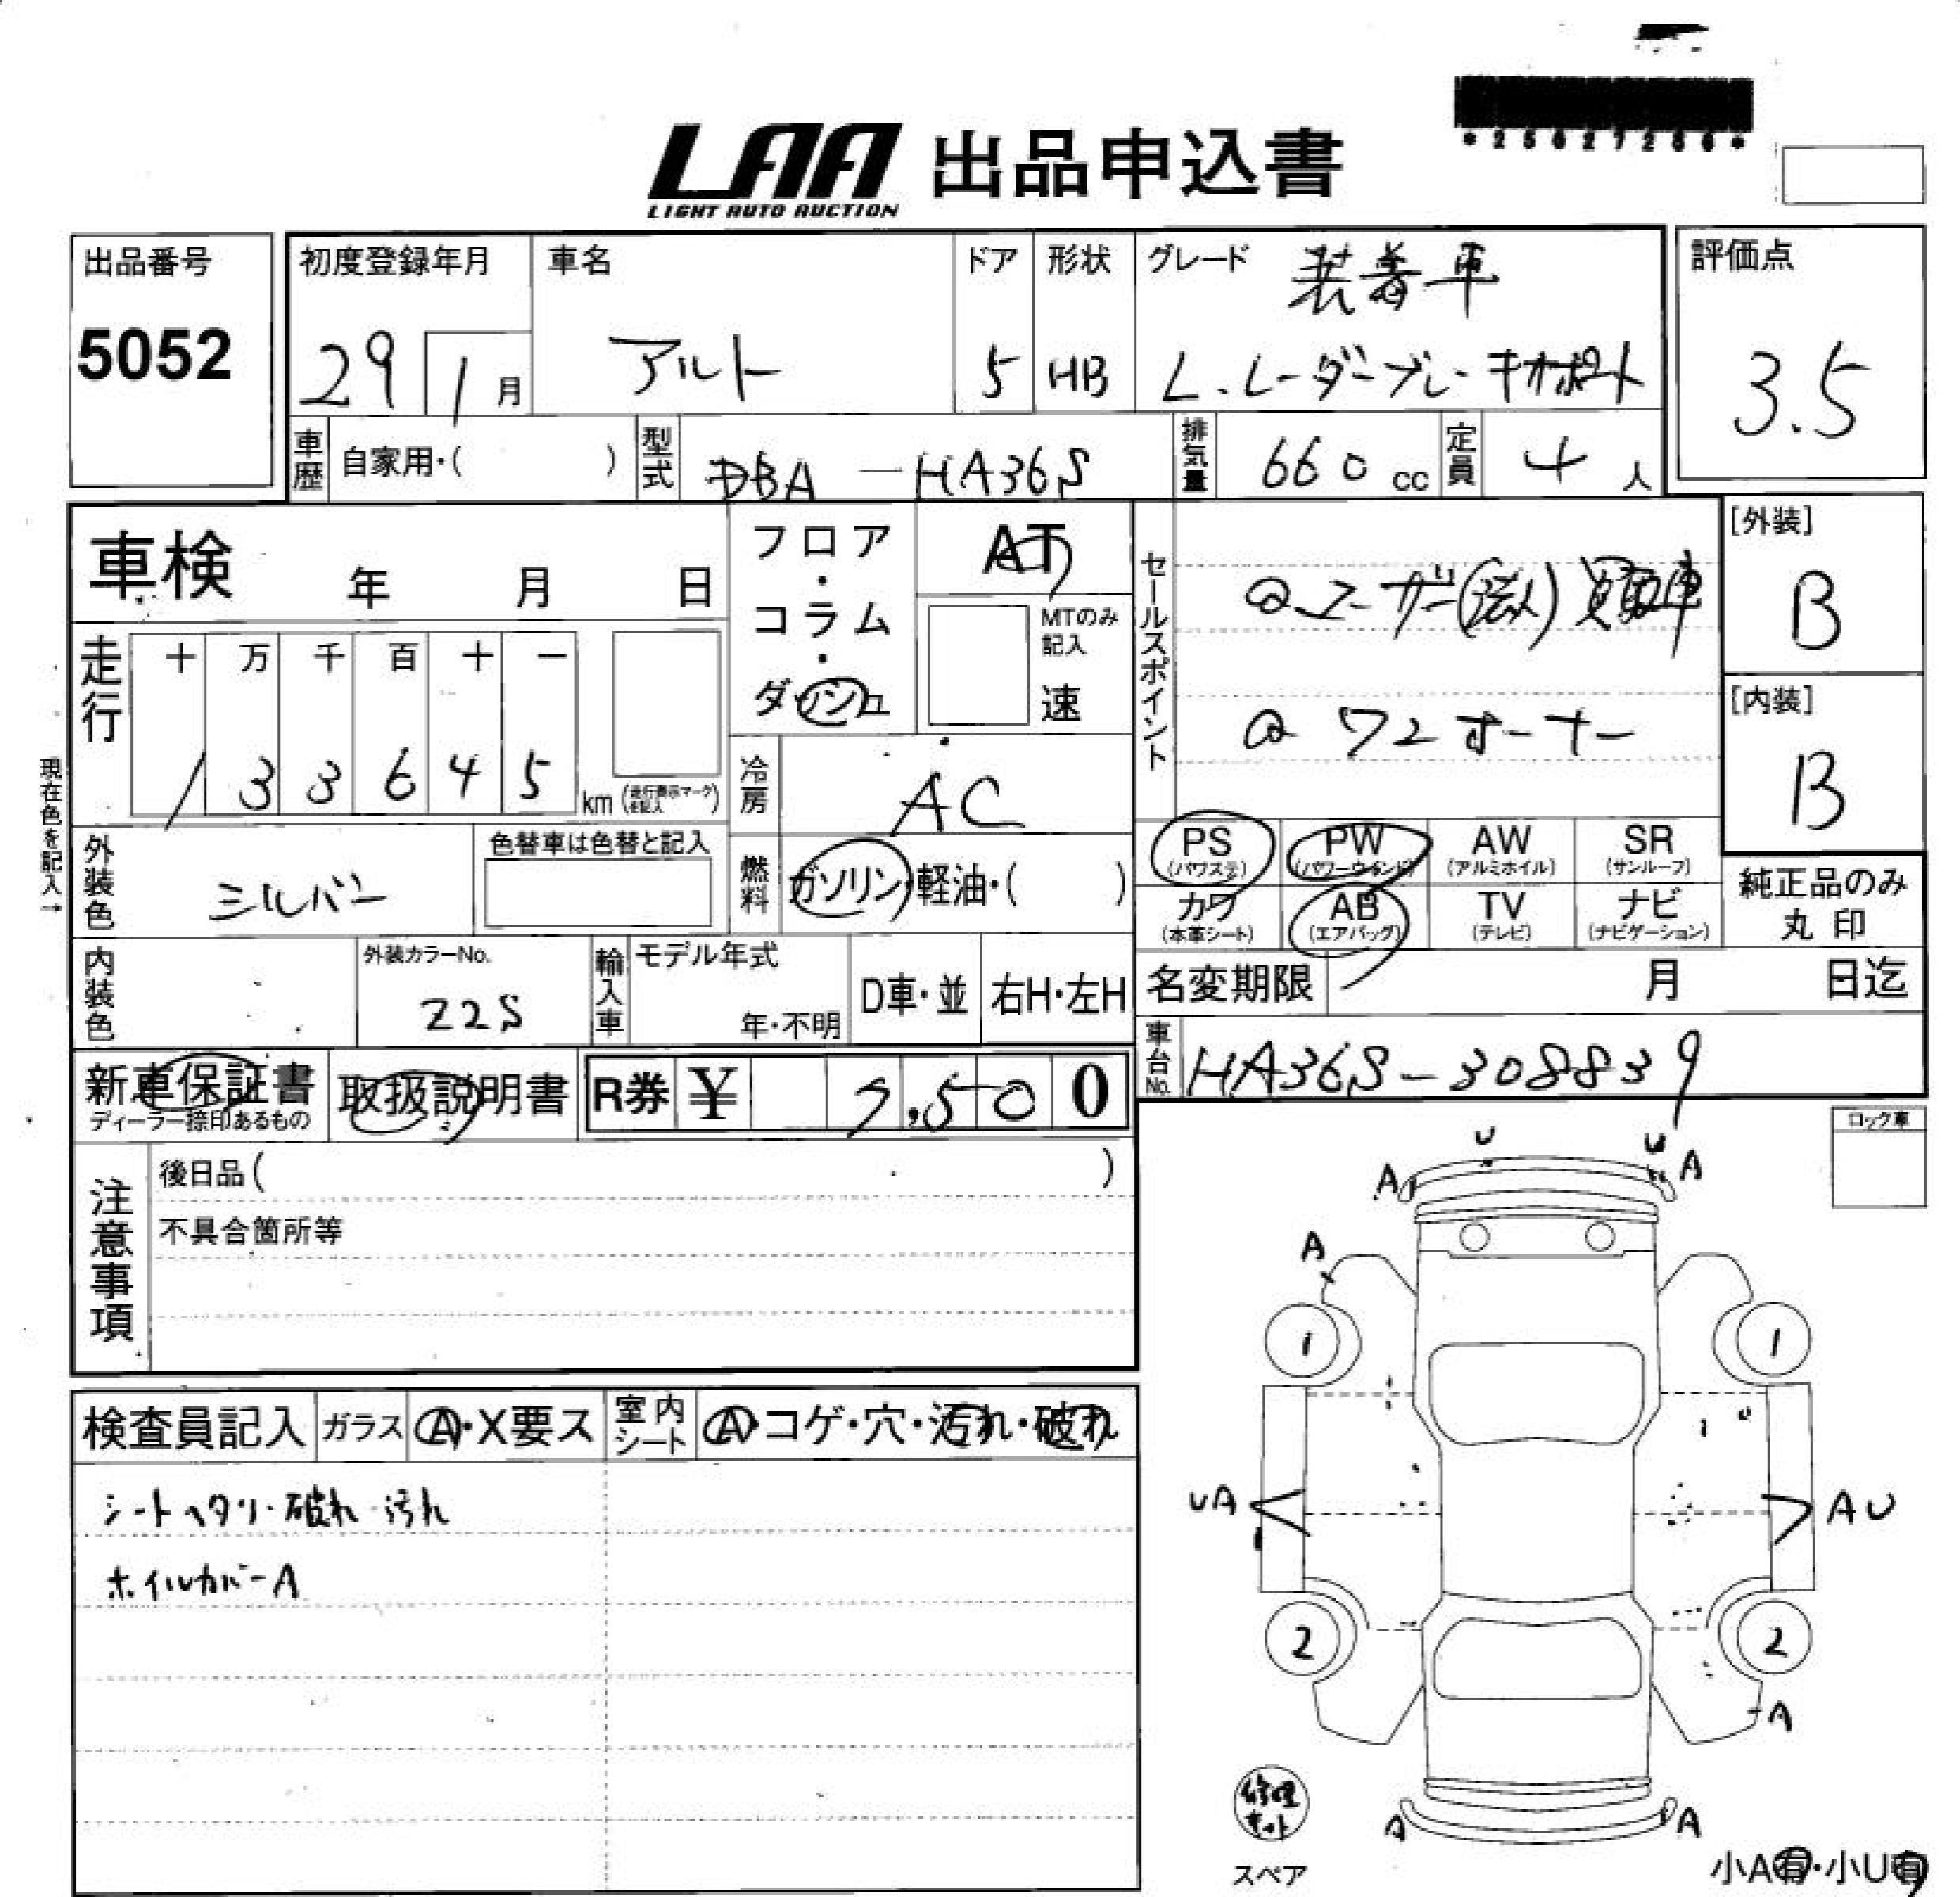 *25627286*
LAA 出品申込書
LIGHT AUTO AUCTION
出品番号
5052
初度登録年月
29 1月
車名
アルト
ドア
5
形状
HB
グレード
装着車
L.レーダーブレーキサポート
評価点
3.5
車歴 自家用・( )
型式 DBA-HA36S
排気量 660 cc
定員 4 人
車検 年 月 日
フロア・コラム・ダッシュ
AT
MTのみ記入
速
走行
十 万 千 百 十 一
1 3 3 6 4 5 km (走行表示マークを記入)
冷房 AC
現在色を記入→
外装色 シルバー
色替車は色替と記入
燃料 ガソリン・軽油・( )
内装色
外装カラーNo.
Z2S
輸入車
モデル年式
年・不明
D車・並
右H・左H
新車保証書
ディーラー捺印あるもの
取扱説明書
R券 ¥ 7,500
セールスポイント
ユーザー(法人)買取車
ワンオーナー
[外装]
B
[内装]
B
PS (パワステ)
PW (パワーウインド)
AW (アルミホイル)
SR (サンルーフ)
カワ (本革シート)
AB (エアバッグ)
TV (テレビ)
ナビ (ナビゲーション)
純正品のみ
丸印
名変期限 月 日迄
車台No. HA36S-308839
注意事項
後日品( )
不具合箇所等
検査員記入
ガラス A・X要ス
室内シート A・コゲ・穴・汚れ・破れ
シートヘタリ・破れ・汚れ
ホイルカバーA
ロック車
U U
A A
A
1 1
UA AU
2 2
A
A A
修理キット
スペア
小A有・小U有